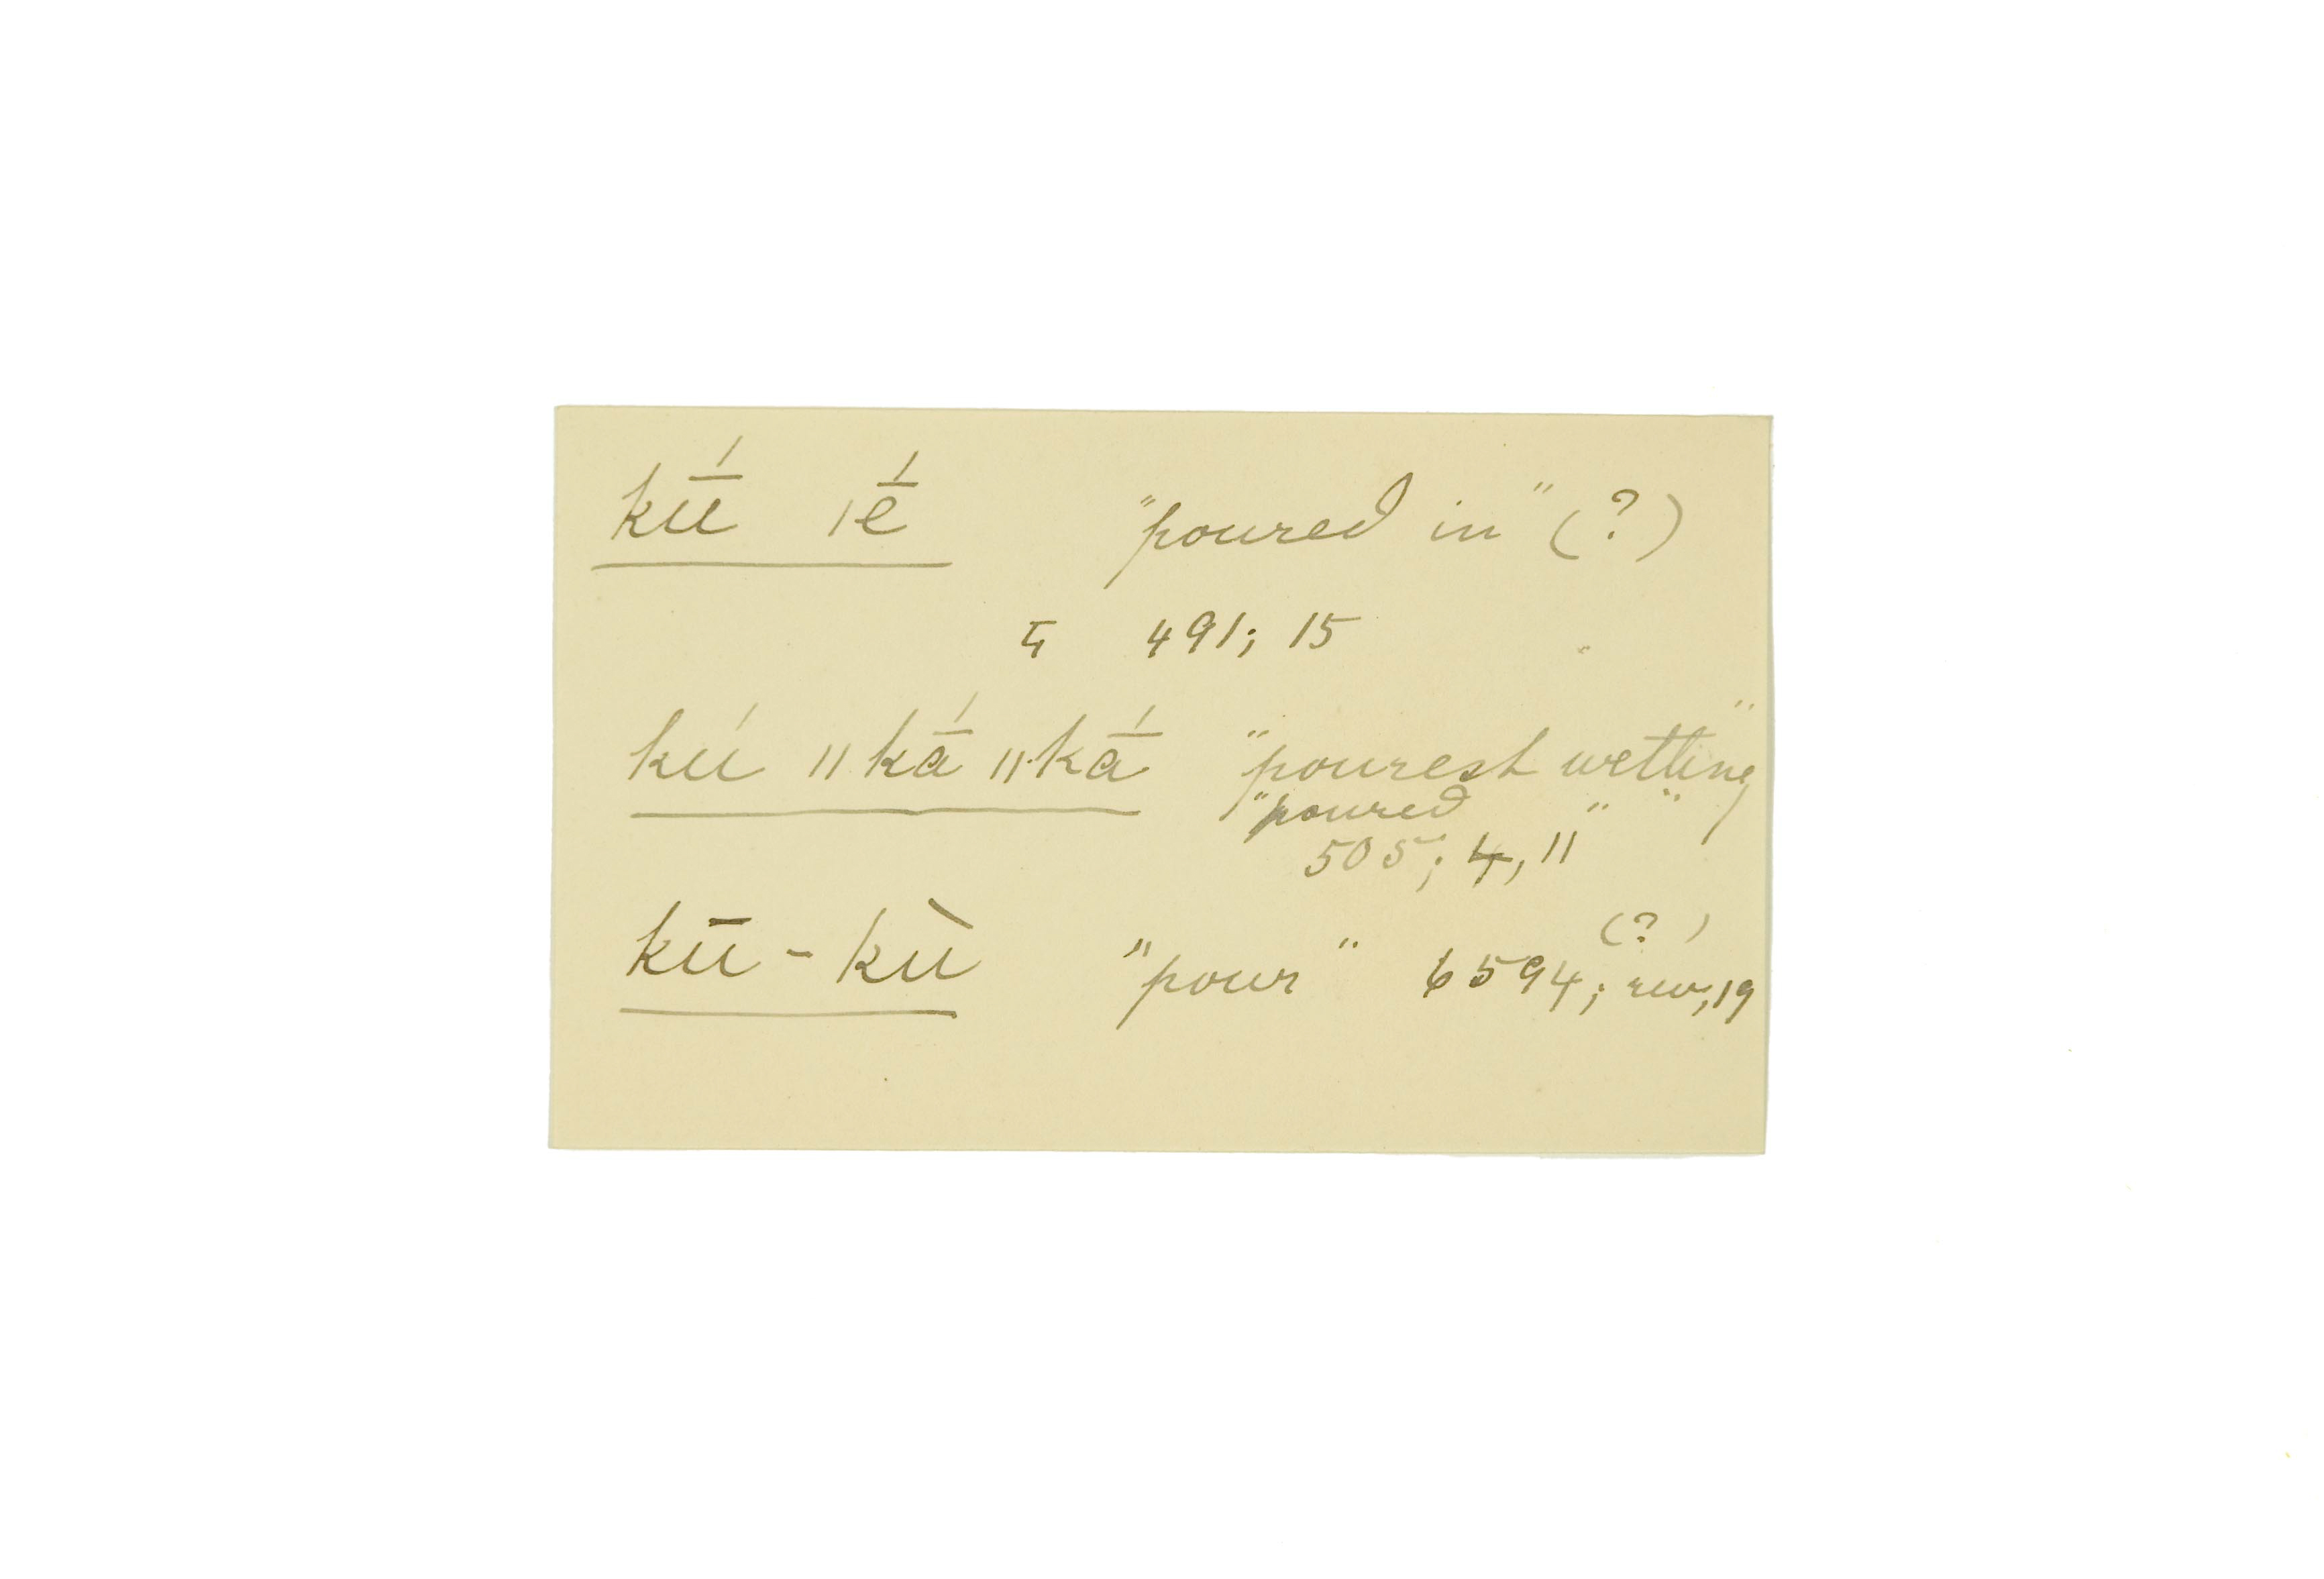 kū́ |ḗ "poured in" (?)
491; 15
kú ||kā́ ||kā́ "pourest wetting"
"poured " "
505; 4, 11
kū - kù "pour" 6594; rev, 19 (?)